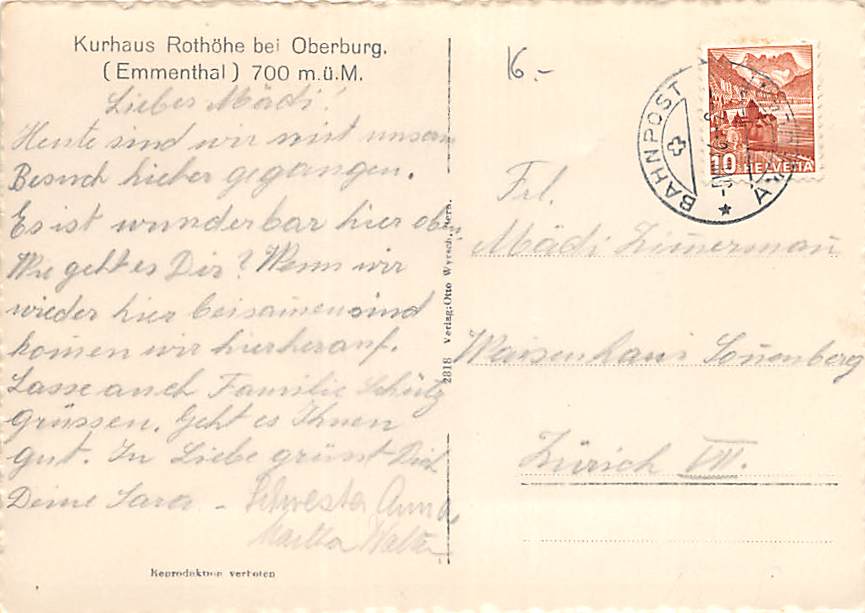 Kurhaus Rothöhe bei Oberburg.
(Emmenthal) 700 m.ü.M.
Liebes Mädi!
Heute sind wir mit unserm
Besuch hieher gegangen.
Es ist wunderbar hier oben
Wie geht es Dir? Wenn wir
wieder hier beisam̄en sind
kom̄en wir hierherauf.
Lasse auch Familie Schütz
grüssen. Geht es Ihnen
gut. In Liebe grüsst Dich
Deine Sara – Schwester Anna
Martha
Reproduktion verboten
2818 Verlag: Otto Wyrsch, Bern.
16.-
BAHNPOST
10 HELVETIA
Frl.
Mädi Zim̄erman̄
Waisenhaus Son̄enberg
Zürich VII.